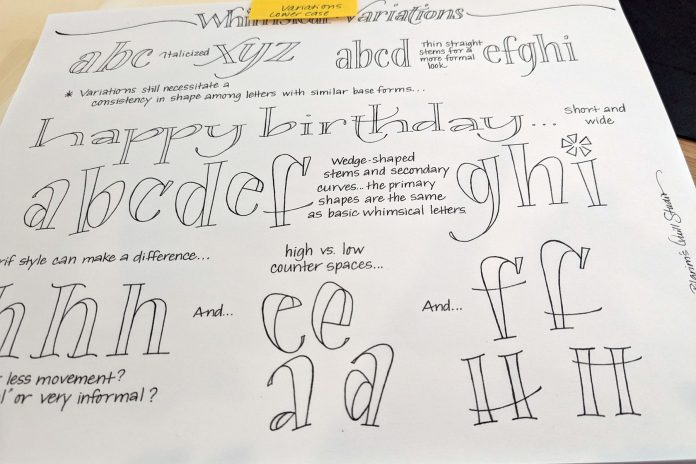 Variations
Lower case
Whimsical Variations
abc Italicized xyz
abcd Thin straight stems for a more formal look efghi
* Variations still necessitate a
consistency in shape among letters with similar base forms...
happy birthday... short and wide
abcdef
Wedge-shaped
stems and secondary
curves... the primary
shapes are the same
as basic whimsical letters
ghi
style can make a difference...
high vs. low
counter spaces...
hhh And... ee And... ff
aa HH
less movement?
or very informal?
Studio